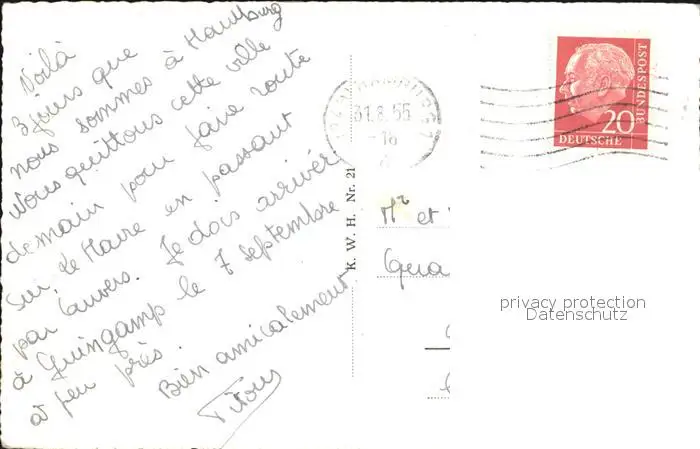 Voilà
3 jours que
nous sommes à Hambourg
Nous quittons cette ville
demain pour faire route
sur Le Havre en passant
par Anvers. Je dois arriver
à Guingamp le 7 septembre
à peu près.
Bien amicalement
Titous
K. W. H. Nr. 21
31.8.55
16
DEUTSCHE
BUNDESPOST
20
Mr et
privacy protection
Datenschutz